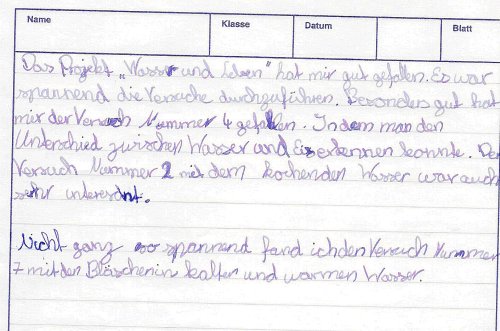 Name Klasse Datum Blatt
Das Projekt „Wasser und Leben" hat mir gut gefallen. Es war
spannend die Versuche durchzuführen. Besonders gut hat
mir der Versuch Nummer 4 gefallen. Indem man den
Unterschied zwischen Wasser und Eis erkennen konnte. Der
Versuch Nummer 2 mit dem kochenden Wasser war auch
sehr interesant.
Nicht ganz so spannend fand ich den Versuch Nummer
7 mit den Bläschen in kalten und warmen Wasser.